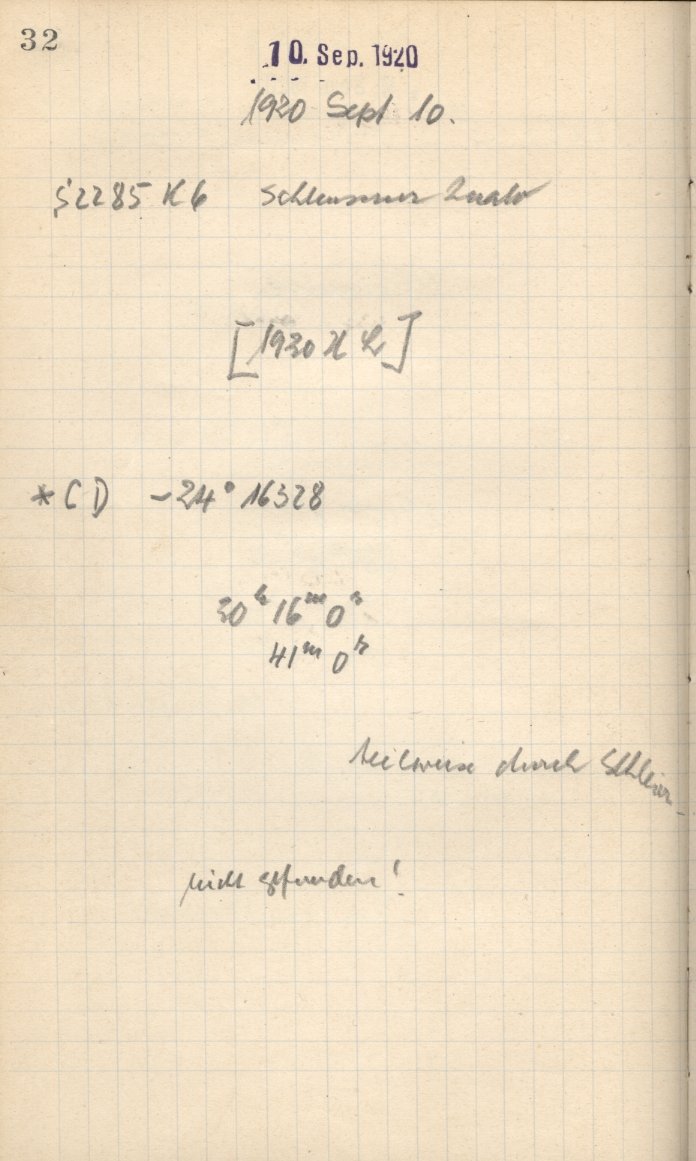 32
10. Sep. 1920
1920 Sept 10.
2285 K6 Schleussner
[1920 H
* CD -24° 16328
20h 16m 0s
41m 0s
teilweise durch Schleier
nicht gefunden!